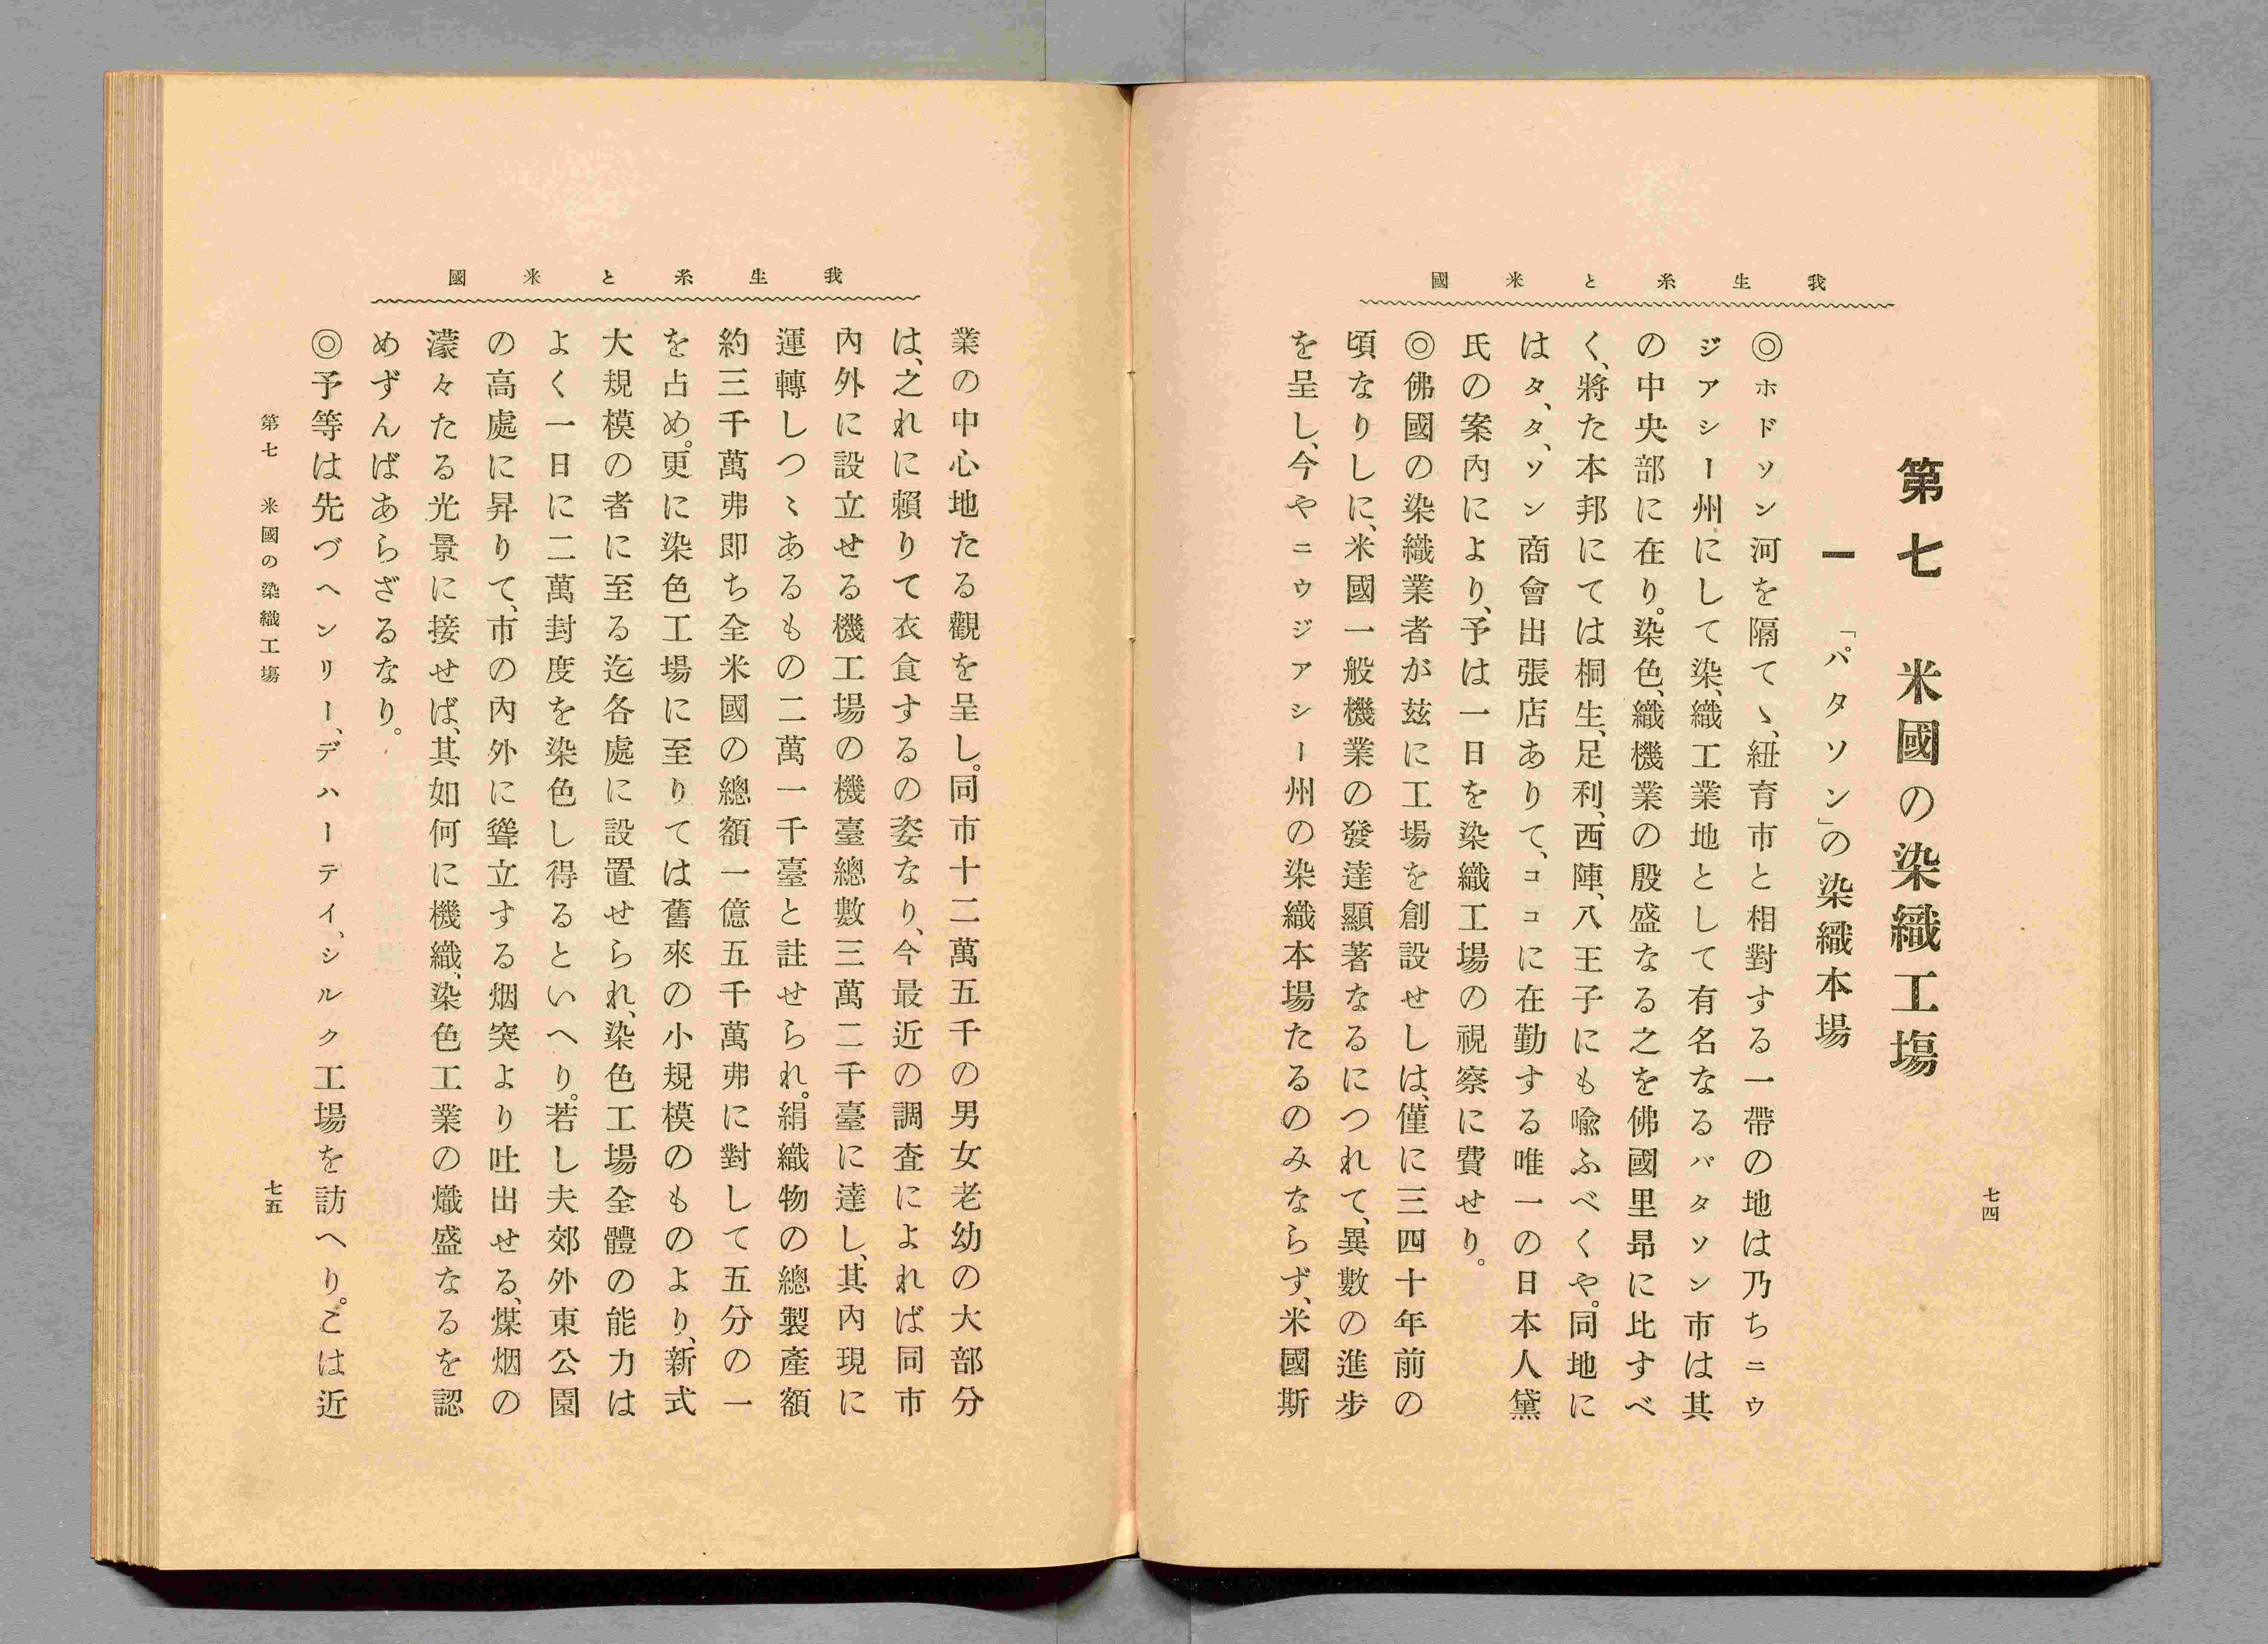 我生糸と米國
第七　米國の染織工塲
一　「パタソン」の染織本場
◎ホドソン河を隔てゝ、紐育市と相對する一帶の地は乃ちニウ
ジアシー州にして染、織工業地として有名なるパタソン市は其
の中央部に在り。染色、織機業の殷盛なる之を佛國里昻に比すべ
く、將た本邦にては桐生、足利、西陣、八王子にも喩ふべくや。同地に
はタ、タ、ソン商會出張店ありて、ココに在勤する唯一の日本人黛
氏の案內により、予は一日を染織工場の視察に費せり。
◎佛國の染織業者が玆に工場を創設せしは、僅に三四十年前の
頃なりしに、米國一般機業の發達顯著なるにつれて、異數の進步
を呈し、今やニウジアシー州の染織本場たるのみならず、米國斯
七四
我生糸と米國
業の中心地たる觀を呈し。同市十二萬五千の男女老幼の大部分
は、之れに賴りて衣食するの姿なり、今最近の調査によれば同市
內外に設立せる機工場の機臺總數三萬二千臺に達し、其內現に
運轉しつゝあるもの二萬一千臺と註せられ。絹織物の總製產額
約三千萬弗即ち全米國の總額一億五千萬弗に對して五分の一
を占め。更に染色工場に至りては舊來の小規模のものより、新式
大規模の者に至る迄各處に設置せられ、染色工場全體の能力は
よく一日に二萬封度を染色し得るといへり。若し夫郊外東公園
の高處に昇りて、市の內外に聳立する烟突より吐出せる、煤烟の
濛々たる光景に接せば、其如何に機織、染色工業の熾盛なるを認
めずんばあらざるなり。
◎予等は先づヘンリー、デハーテイ、シルク工場を訪へり。こは近
第七　米國の染織工塲
七五